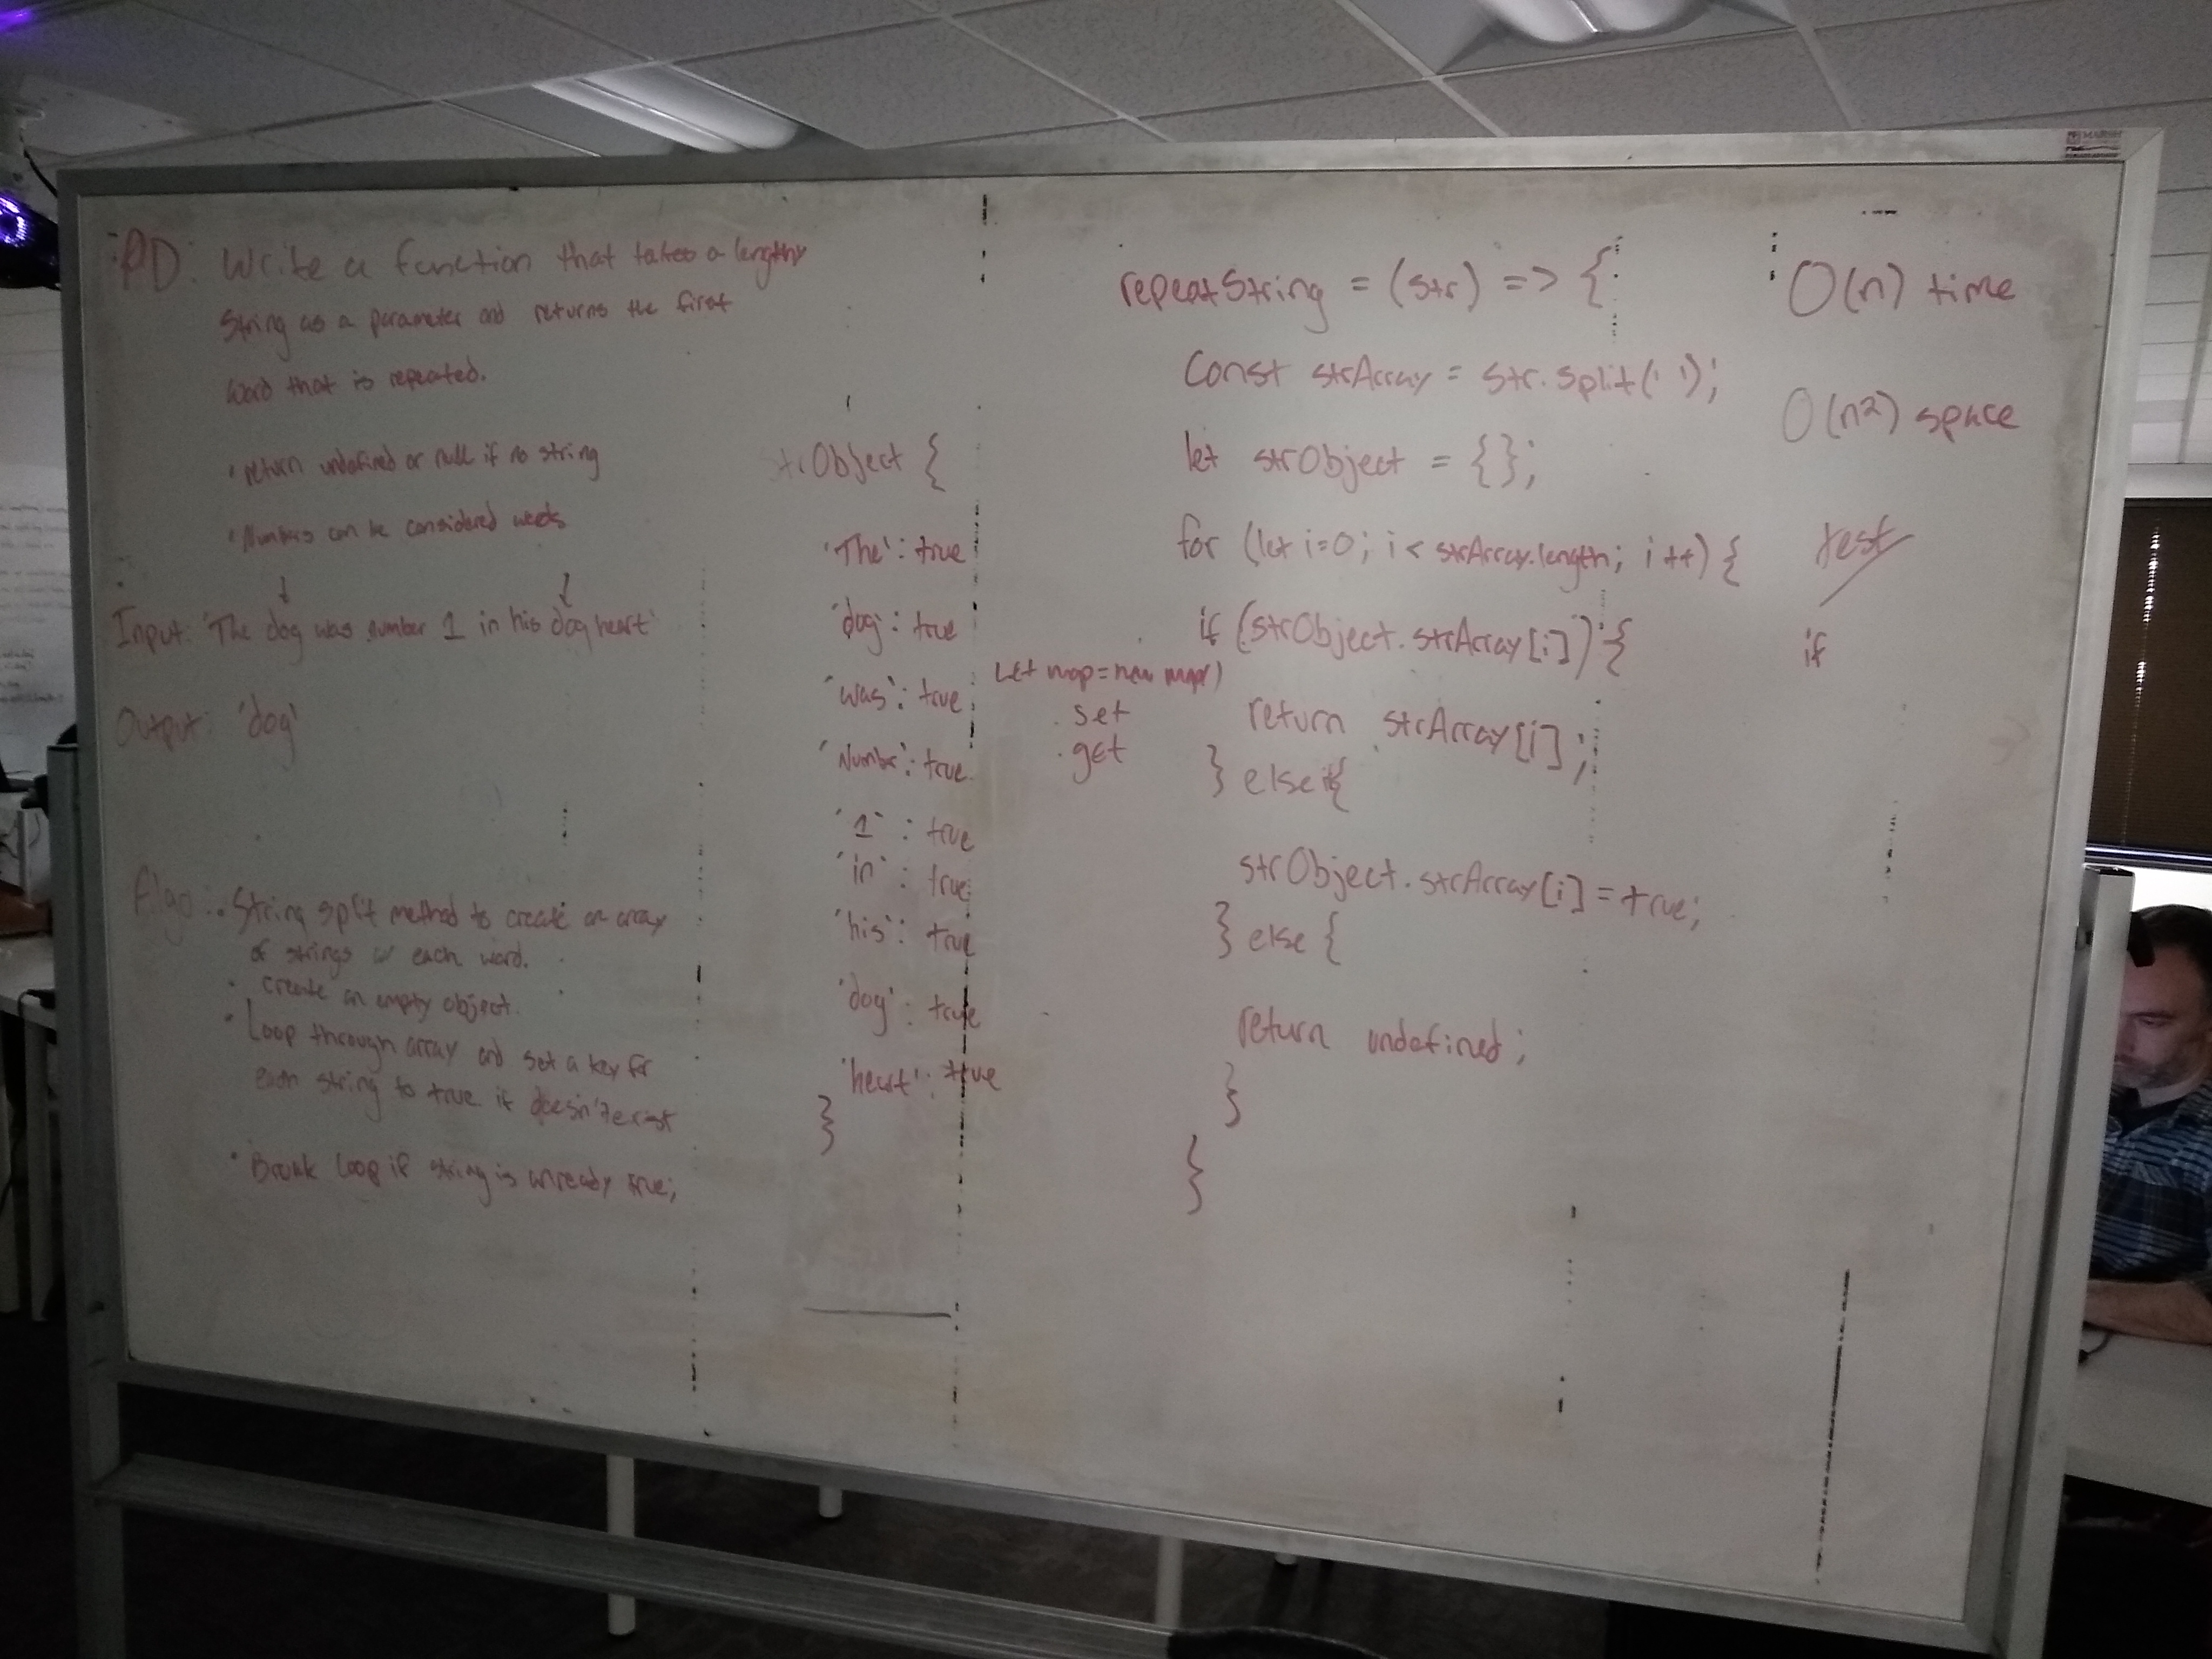 PD: Write a function that takes a lengthy
String as a parameter and returns the first
word that is repeated.
• return undefined or null if no string
• Numbers can be considered words
Input: 'The dog was number 1 in his dog heart'
Output: 'dog'
Algo: • String split method to create an array
of strings w/ each word.
• create an empty object.
• Loop through array and set a key for
each string to true if doesn't exist
• Break loop if string is already true;
trObject {
'The': true
'dog': true
'was': true
'Number': true
'1': true
'in': true
'his': true
'dog': true
'heart': true
}
Let map = new map()
.set
.get
repeatString = (str) => {
Const strArray = str.split(' ');
let strObject = {};
for (let i=0; i < strArray.length; i++) {
if (strObject.strArray[i]) {
return strArray[i];
} else {
strObject.strArray[i] = true;
} else {
return undefined;
}
}
O(n) time
O(n2) space
test
if